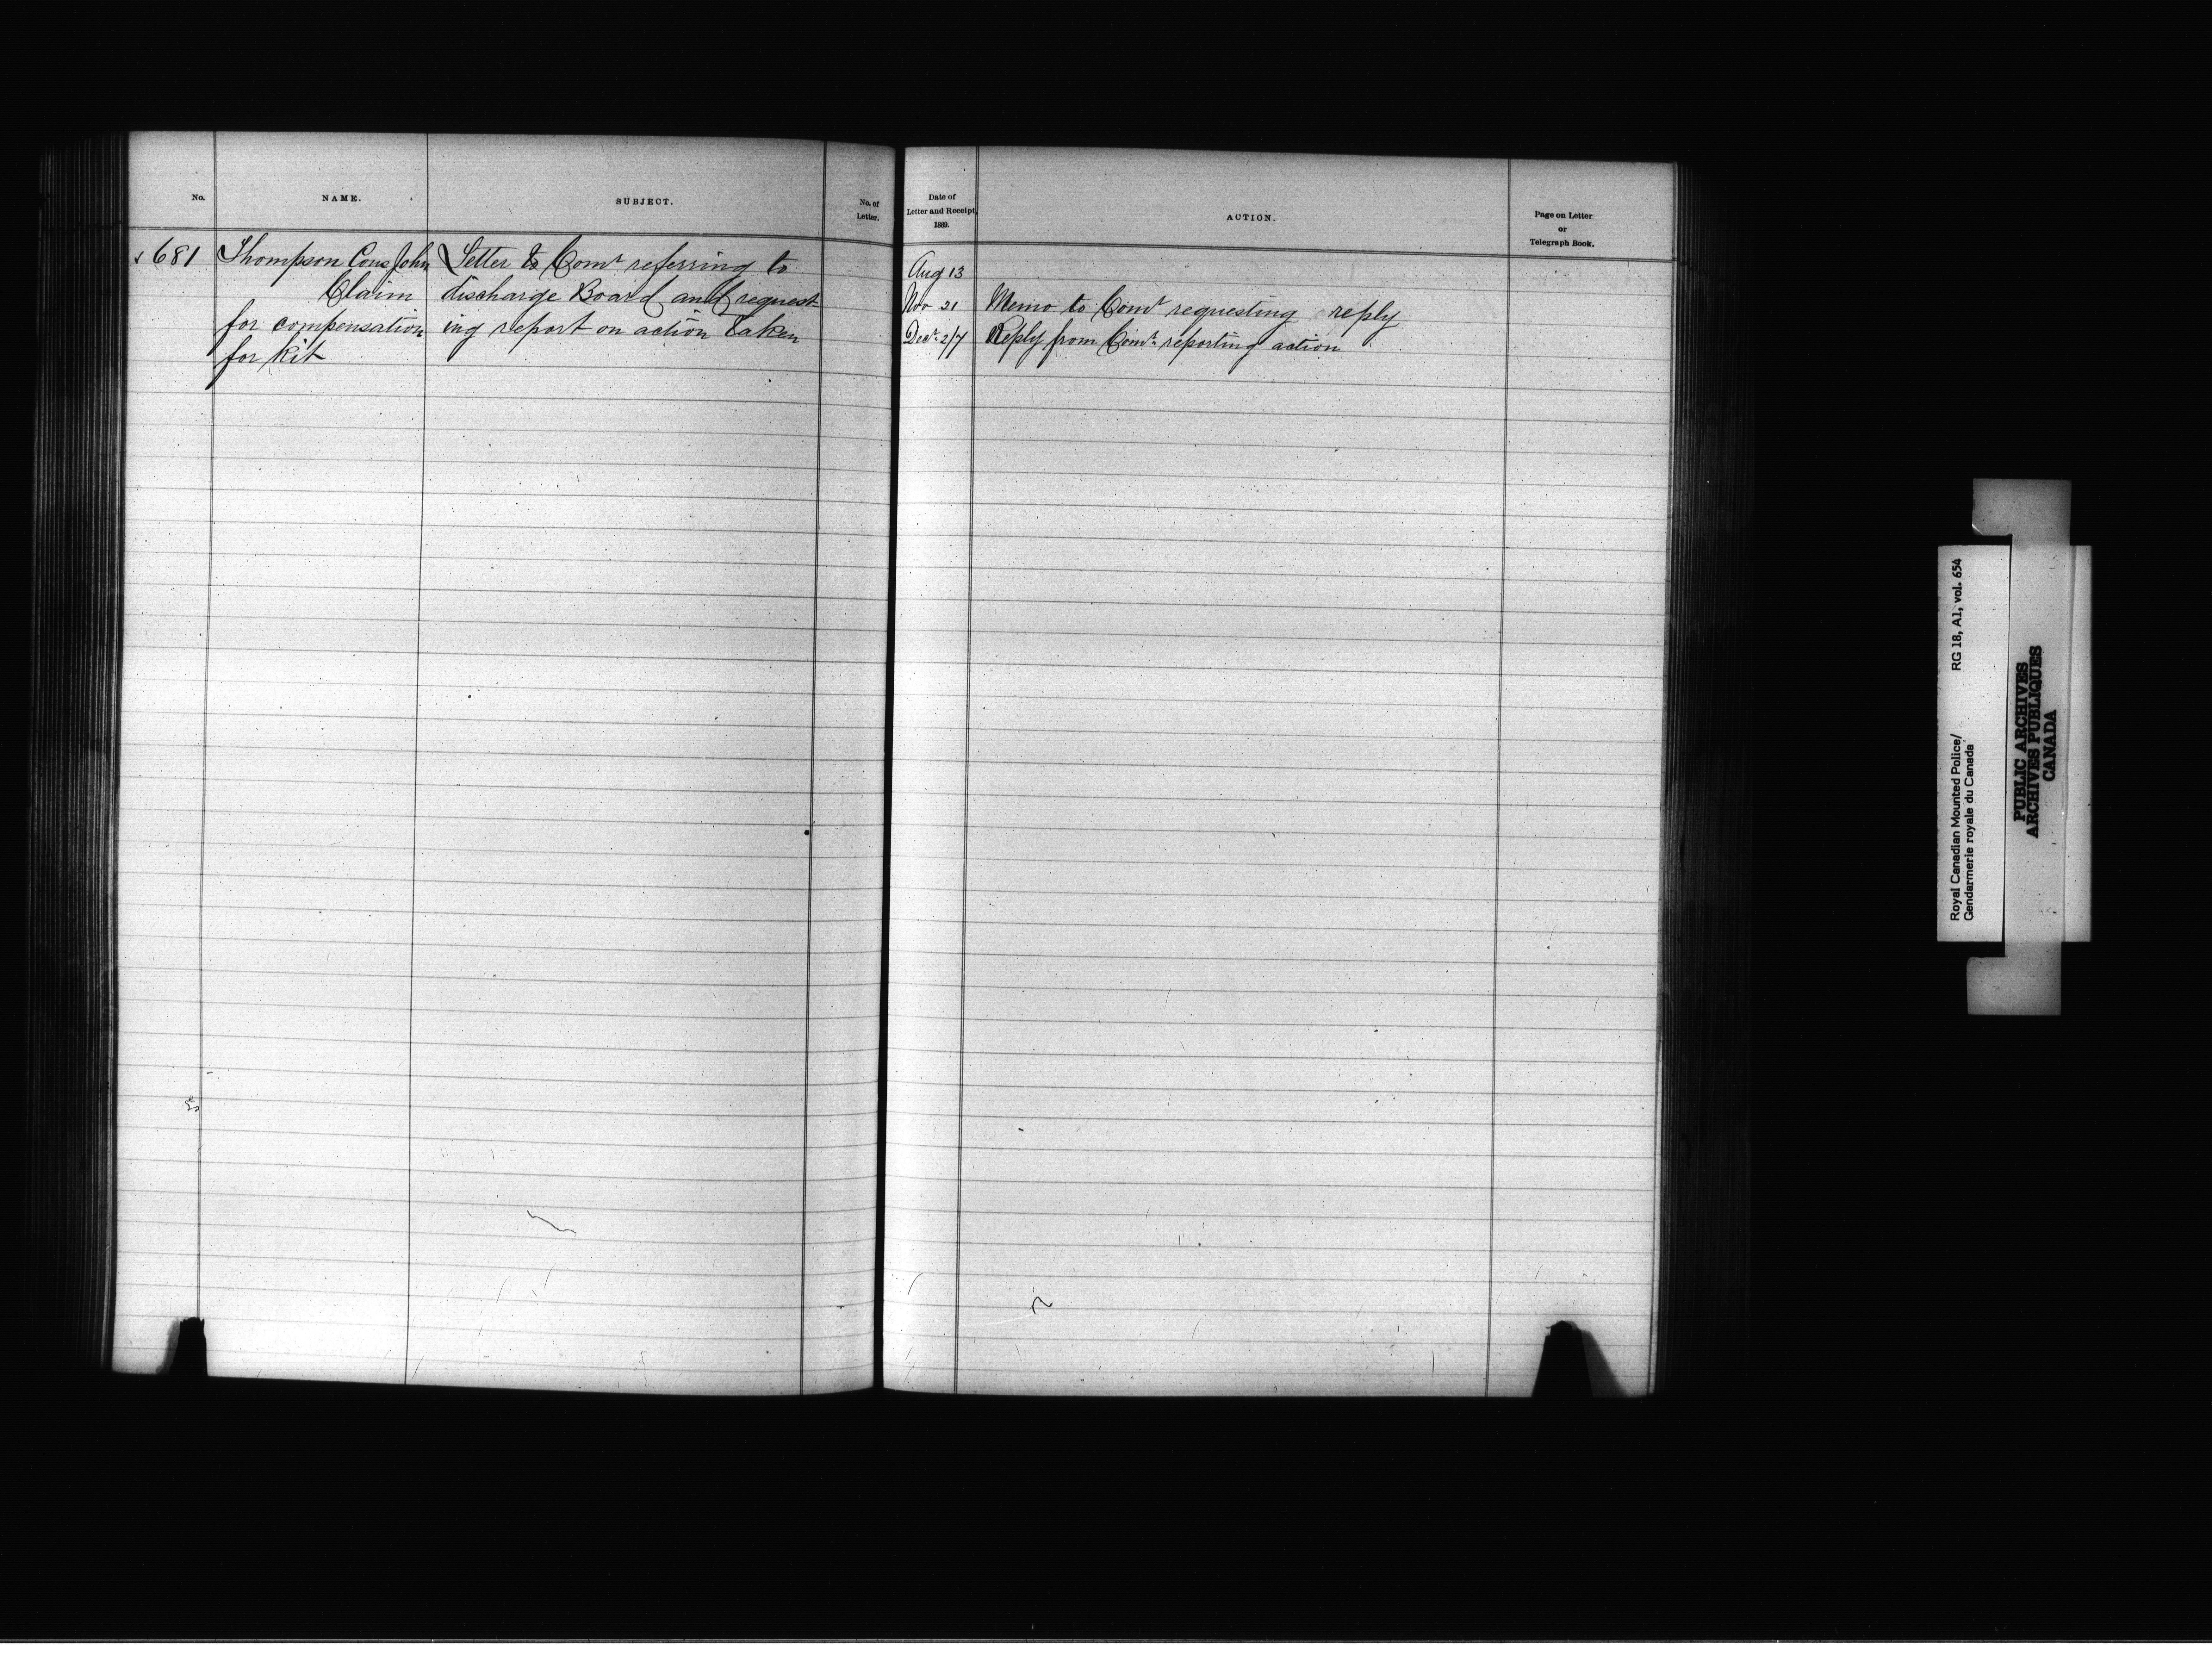 No.
NAME.
SUBJECT.
No. of
Letter.
Date of
Letter and Receipt,
1889.
ACTION.
Page on Letter
or
Telegraph Book.
681 Thompson Cons John
Claim
for compensation
for kit
Letter to Comr referring to
discharge Board and request-
ing report on action taken
Aug 13
Nov 21 Memo to Comr requesting reply
Decr 2/7 Reply from Comr reporting action
Royal Canadian Mounted Police/ RG 18, A1, vol. 654
Gendarmerie royale du Canada
PUBLIC ARCHIVES
ARCHIVES PUBLIQUES
CANADA